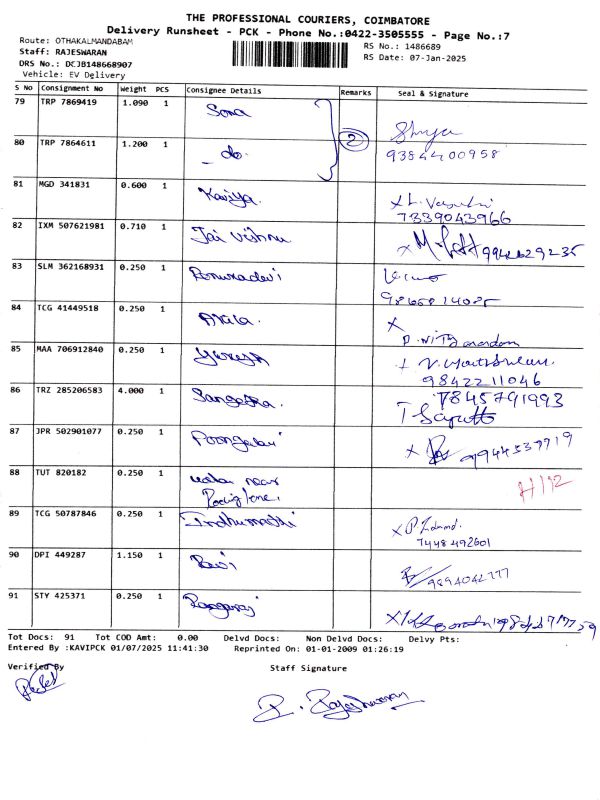 THE PROFESSIONAL COURIERS, COIMBATORE
Delivery Runsheet - PCK - Phone No.:0422-3505555 - Page No.:7
Route: OTHAKALMANDABAM RS No.: 1486689
Staff: RAJESWARAN RS Date: 07-Jan-2025
DRS No.: DCJB148668907
Vehicle: EV Delivery
S No Consignment No Weight PCS Consignee Details Remarks Seal & Signature
79 TRP 7869419 1.090 1 Sona
80 TRP 7864611 1.200 1 - do. 2 Shriya
9384400958
81 MGD 341831 0.600 1 Kaviya.
7339043966
82 IXM 507621981 0.710 1 Jai Vishnu
83 SLM 362168931 0.250 1 Renukadevi
84 TCG 41449518 0.250 1 Akila.
85 MAA 706912840 0.250 1
9842211046
86 TRZ 285206583 4.000 1 Sangeetha. 7845791993
87 JPR 502901077 0.250 1 Poongodi 9944537719
88 TUT 820182 0.250 1
89 TCG 50787846 0.250 1 Indhumathi
7448492601
90 DPI 449287 1.150 1 Ravi
91 STY 425371 0.250 1 Rangaraj
Tot Docs: 91 Tot COD Amt: 0.00 Delvd Docs: Non Delvd Docs: Delvy Pts:
Entered By :KAVIPCK 01/07/2025 11:41:30 Reprinted On: 01-01-2009 01:26:19
Verified By Staff Signature
R. Rajeshwaran